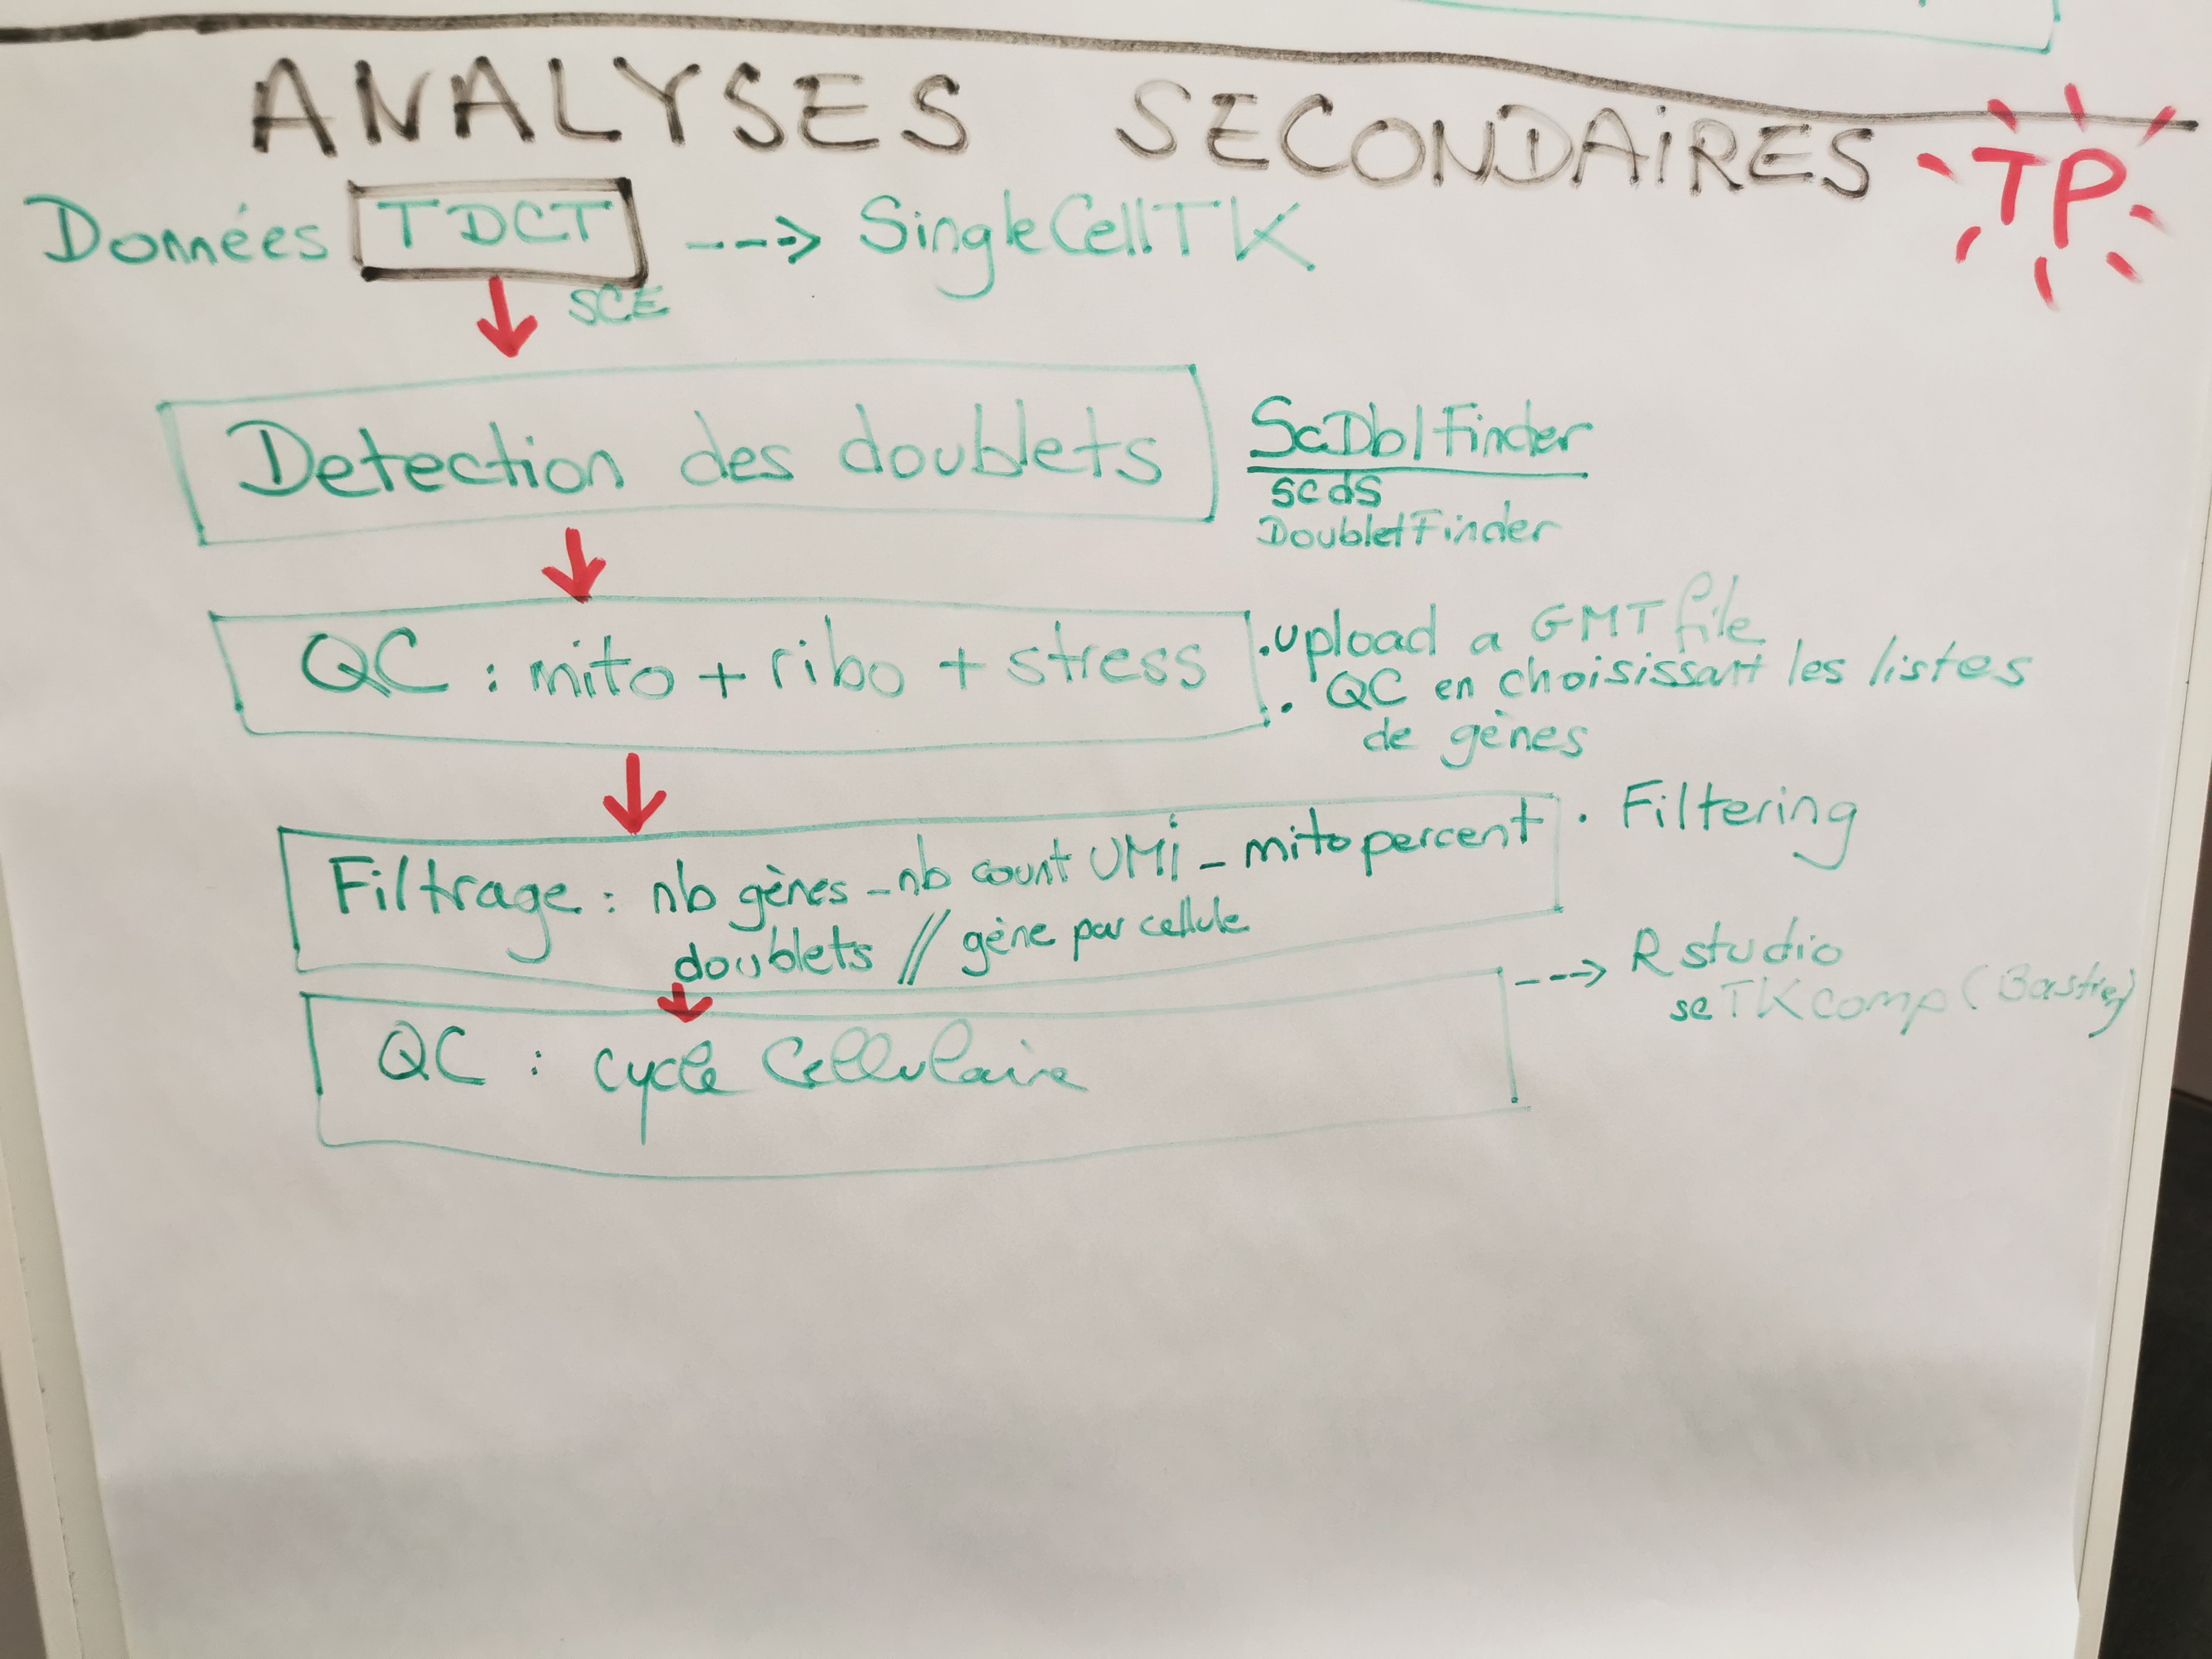 ANALYSES SECONDAIRES TP
Données TDCT ---> SingleCellTK
SCE
Detection des doublets
ScDblFinder
scds
DoubletFinder
QC : mito + ribo + stress
. upload a GMT file
. QC en choisissant les listes
de gènes
Filtrage : nb gènes - nb count UMi - mitopercent
doublets // gène par cellule
. Filtering
QC : cycle Cellulaire
---> R studio
scTKcomp (Bastien)